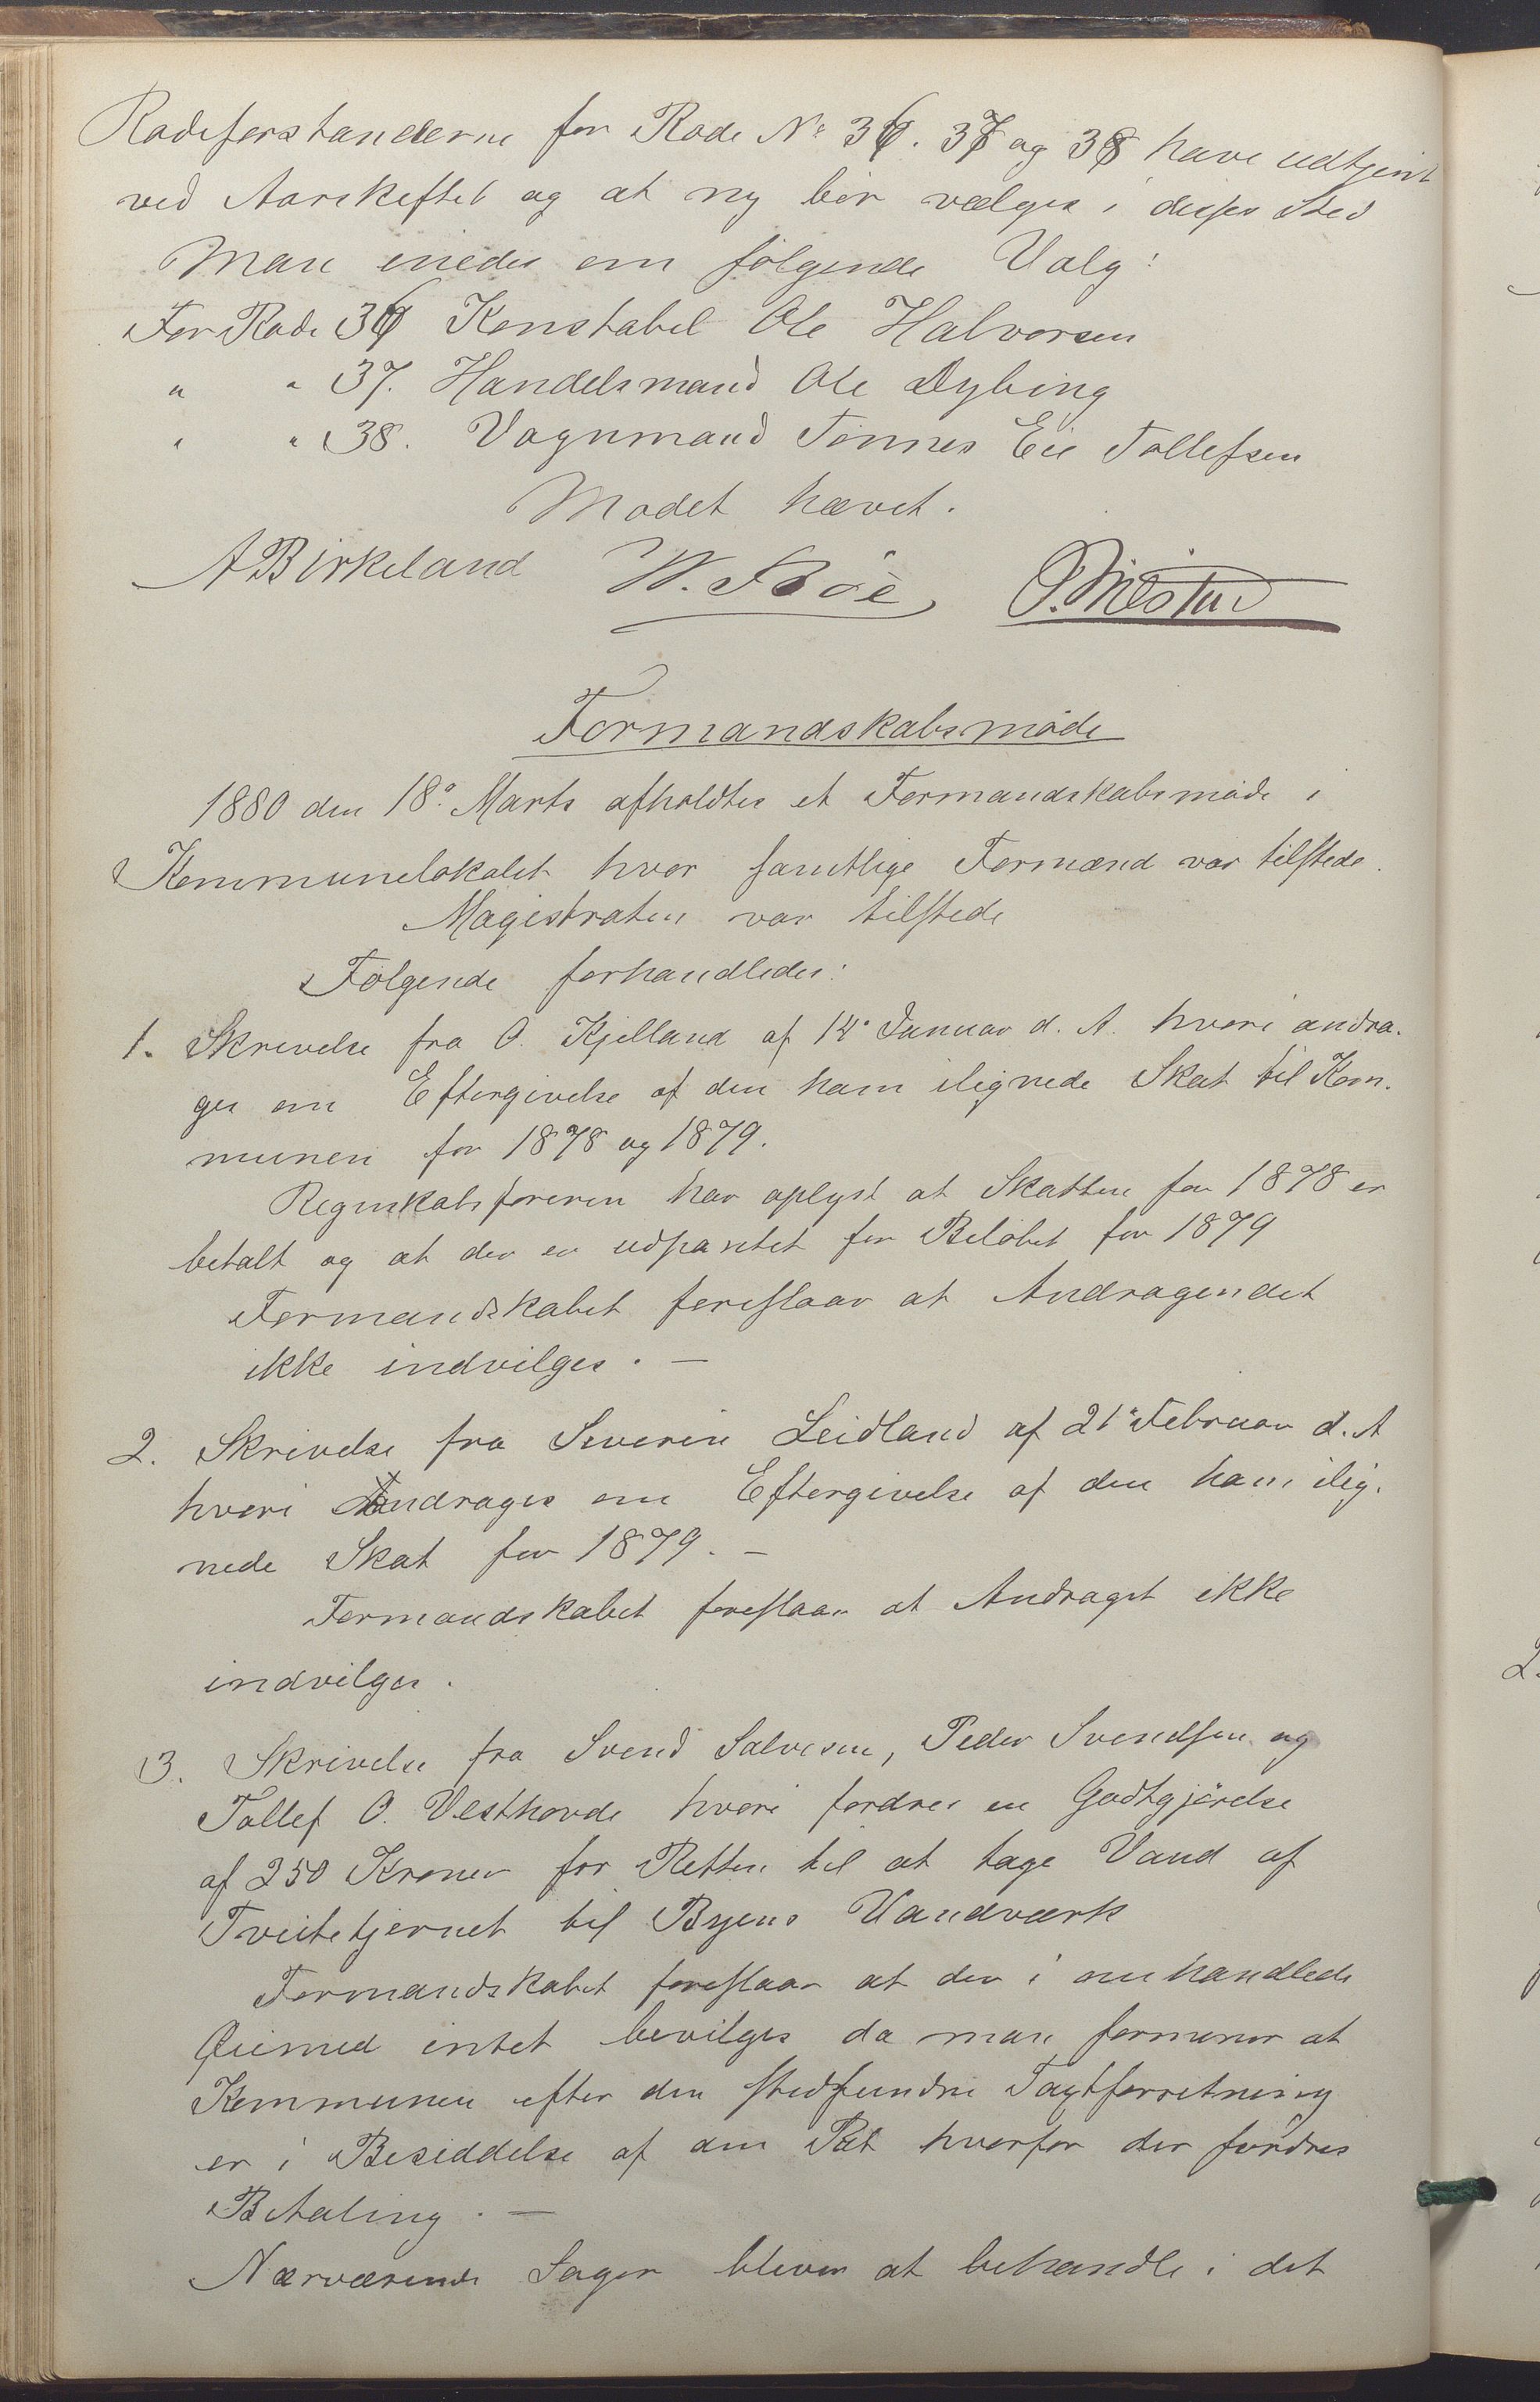 Rodeforstanderne for Rode No 36. 37 og 38 have udtjent
ved Aarskiftet og at ny bör vælges i disses Sted
Man enedes om fölgende Valg:
For Rode 36 Konstabel Ole Halvorsen
" " 37. Handelsmand Ole Dybing
" " 38. Vognmand Tönnes Eie Tollefsen
Mödet hævet.
A Birkeland W. Böe
Formandskabsmöde
1880 den 18de Marts afholdtes et Formandskabsmöde i
Kommunelokalet hvor samtlige Formænd var tilstede.
Magistraten var tilstede
Fölgende forhandledes:
1. Skrivelse fra O. Kjelland af 14de Januar d. A. hvori andra-
ges om Eftergivelse af den ham ilignede Skat til Kom-
munen for 1878 og 1879.
Regnskabsföreren har oplyst at Skatten for 1878 er
betalt og at der er udpantet for Belöbet for 1879
Formandskabet foreslaar at Andragendet
ikke indvilges. —
2. Skrivelse fra Severin Leidland af 21de Februar d. A
hvori Andrages om Eftergivelse af den ham ilig-
nede Skat for 1879. —
Formandskabet foreslaar at Andraget ikke
indvilges.
3. Skrivelse fra Svend Salvesen, Peder Svendsen og
Tollef O. Vesthovde hvori fordres en Godtgjörelse
af 250 Kroner for Retten til at tage Vand af
Tveitetjernet til Byens Vandværk
Formandskabet foreslaar at der i omhandlede
Öiemed intet bevilges da man formener at
Kommunen efter den stedfundne Taxtforretning
er i Besiddelse af den Ret hvorfor der fordres
Betaling. —
Nærværende Sager bliver at behandle i det